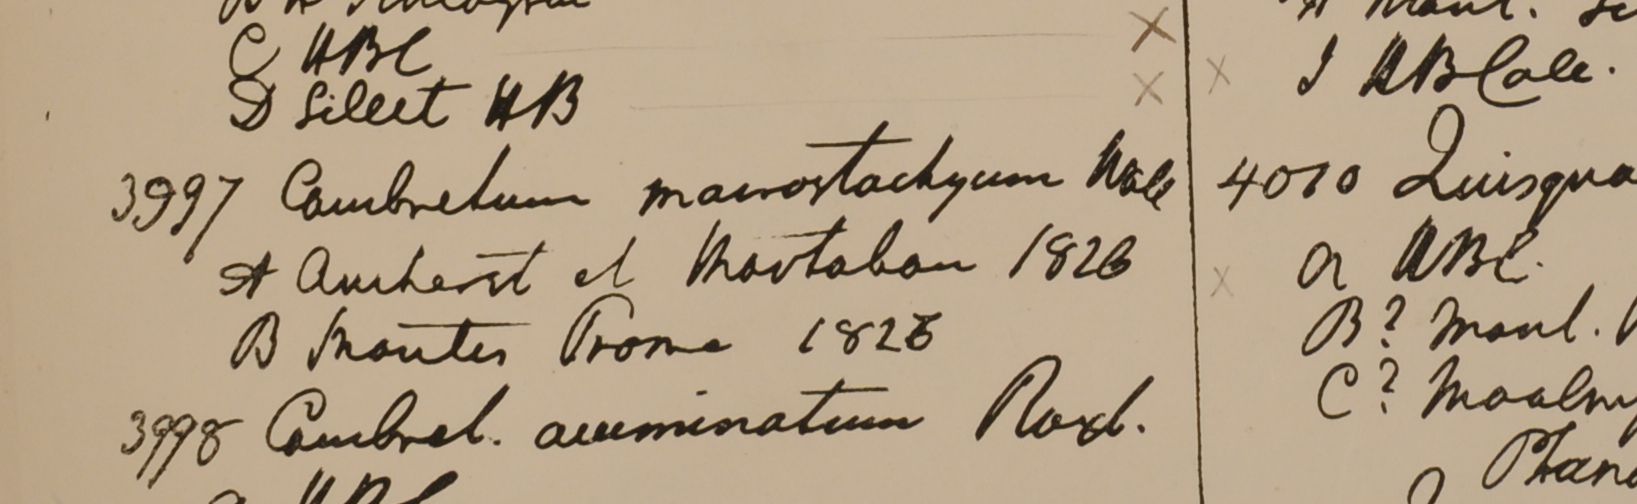 C HBC
D Sillet HB
3997 Combretum macrostachyum Wall
A Amherst et Martaban 1826
B Montes Prome 1826
3998 Combret. acuminatum Roxb.
HBC
J HBCalc.
4010 Quisqua
a HBC.
B? Moul.
C?